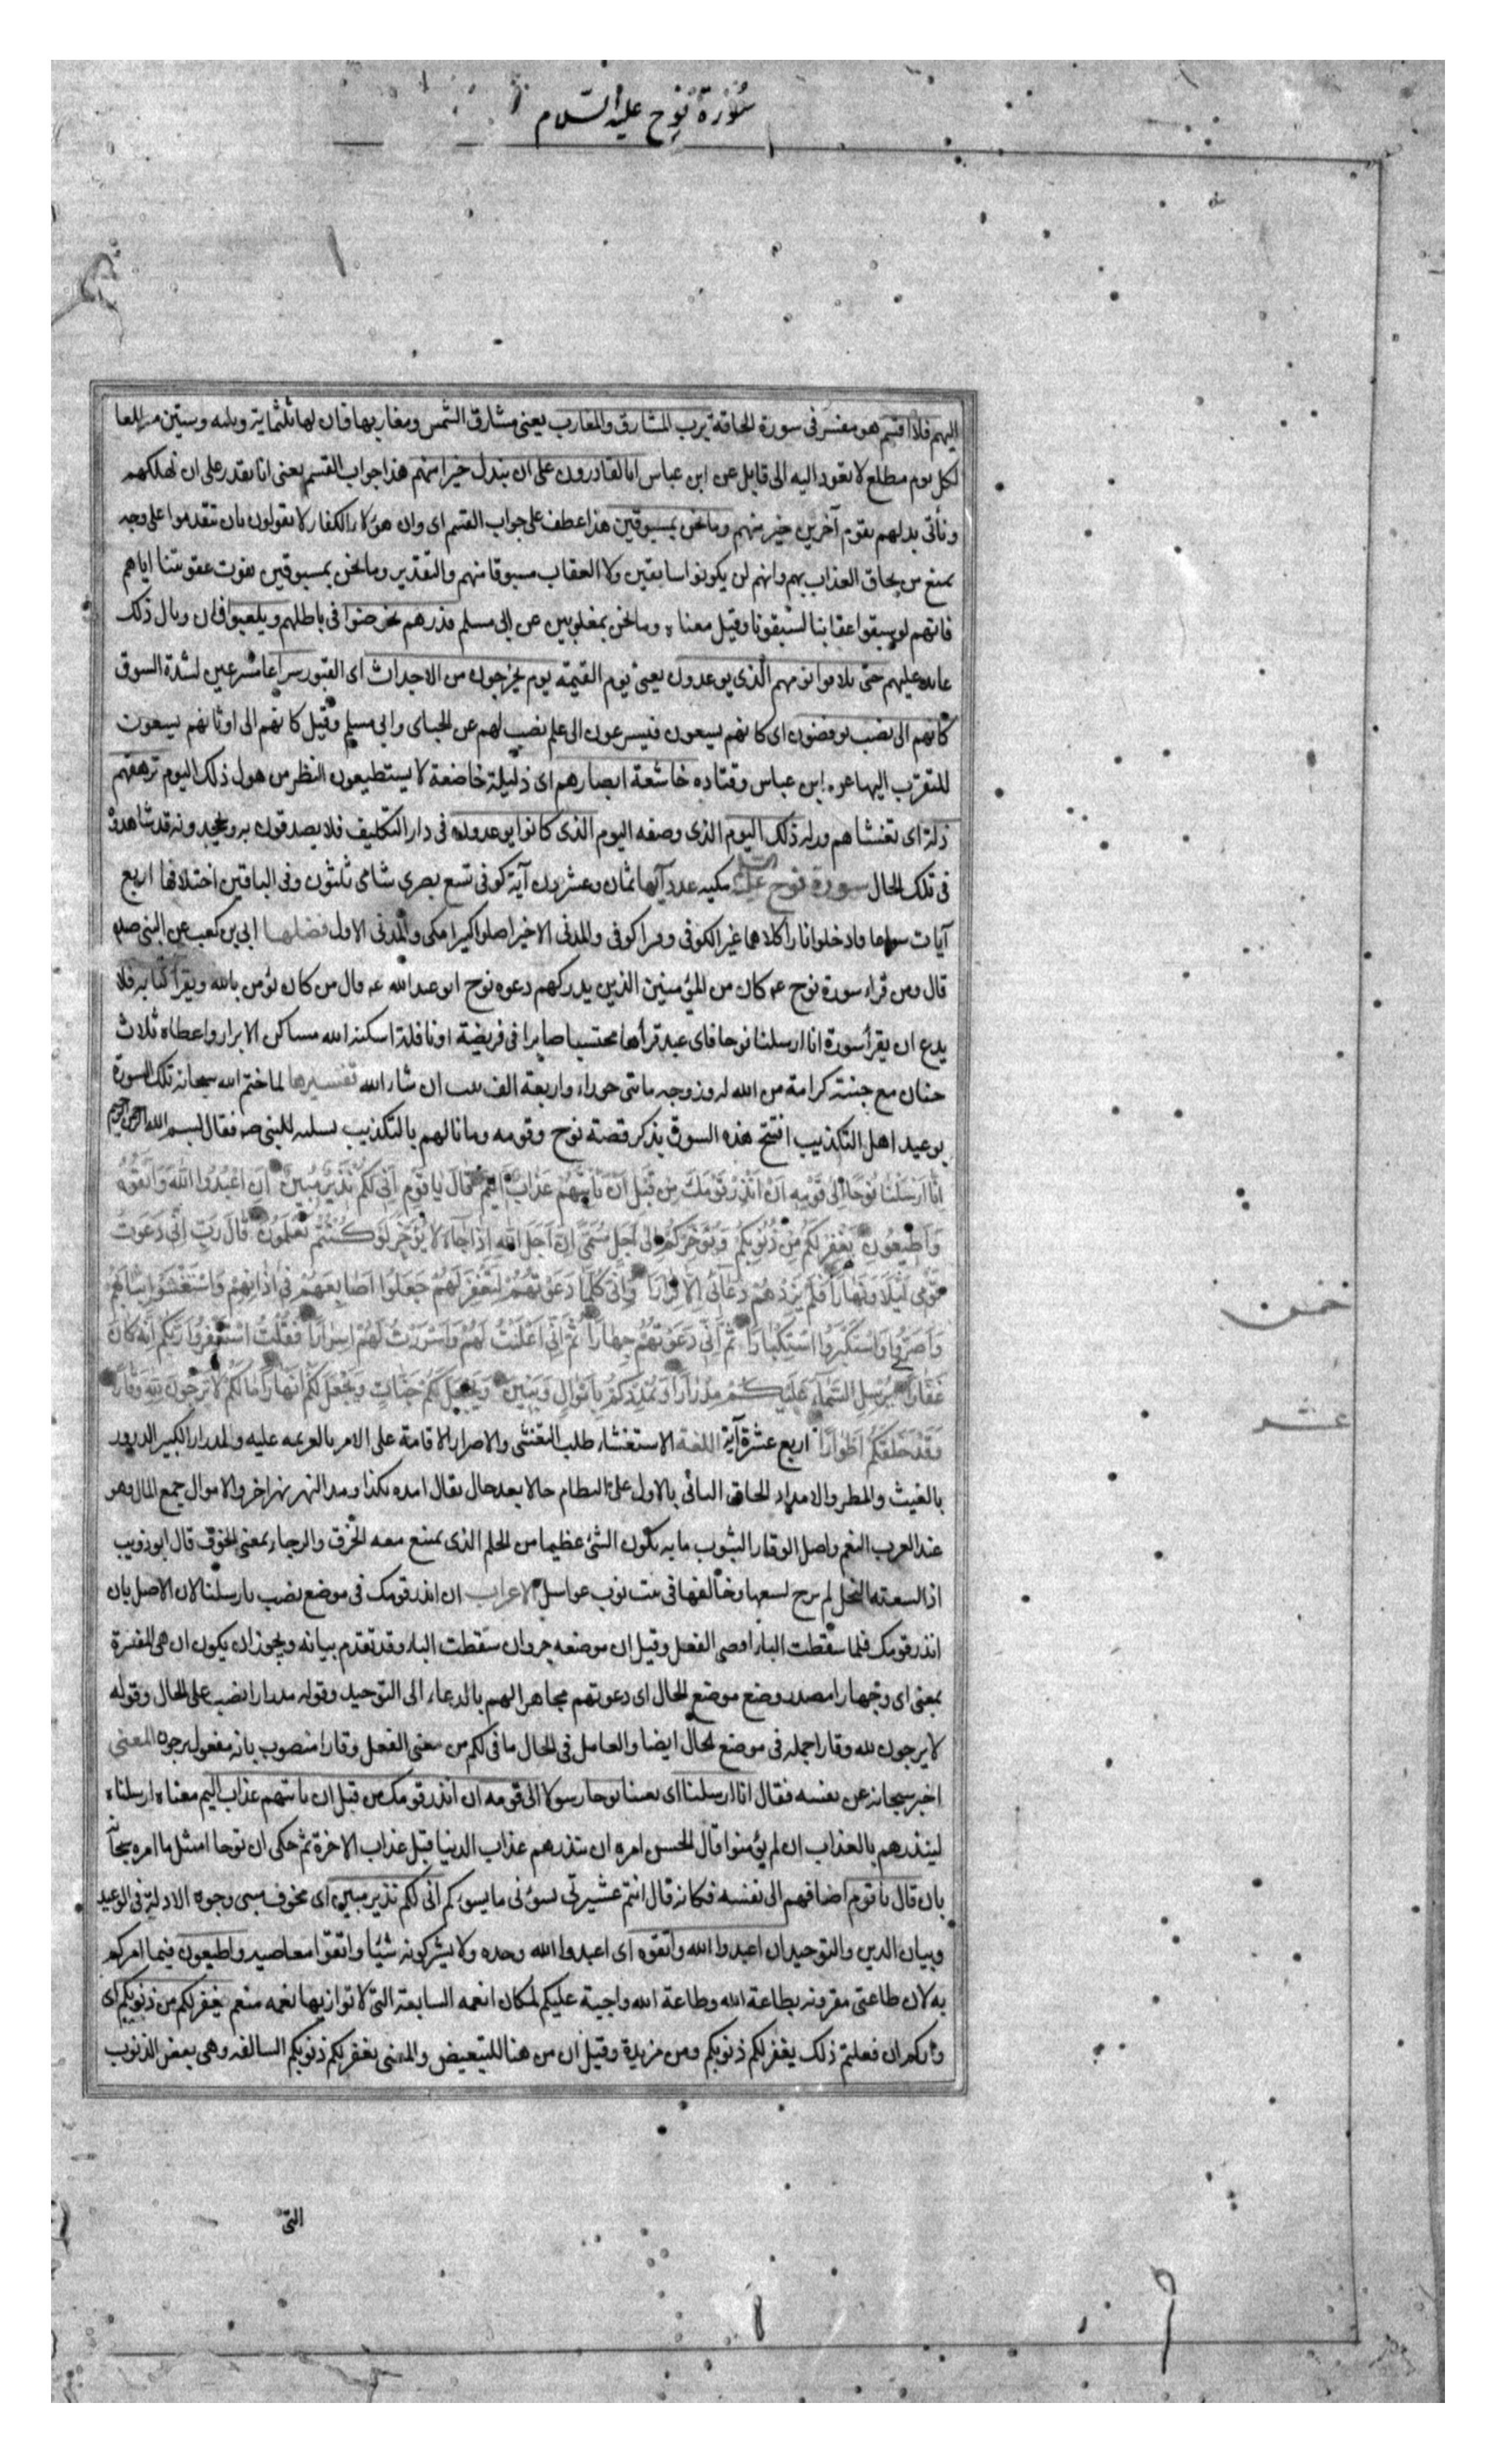 سورة نوح عليه السلام
اليهم فلا اقسم هو مفسر في سورة الحاقة برب المشارق والمغارب يعني مشارق الشمس ومغاربها فان لها ثلثماية وستين مطلعا
لكل يوم مطلع لا تعود اليه الى قابل عن ابن عباس انا لقادرون على ان نبدل خيرا منهم هذا جواب القسم يعني انا نقدر على ان نهلكهم
ونأتي بدلهم بقوم آخرين خير منهم وما نحن بمسبوقين هذا عطف على جواب القسم اى وان هؤلاء الكفار لا يقولون بان تتقدموا على وجه
يمنع من لحاق العذاب بهم وانهم لن يكونوا سابقين ولا العقاب مسبوقا منهم والتقدير وما نحن بمسبوقين بفوت عقوبتنا اياهم
فانهم لو سبقوا عقابنا لسبقونا وقيل معناه وما نحن بمغلوبين عن ابي مسلم فذرهم يخوضوا في باطلهم ويلعبوا فان وبال ذلك
عايد عليهم حتى يلاقوا يومهم الذي يوعدون يعني يوم القيمة يوم يخرجون من الاجداث اى القبور سراعا مسرعين لشدة السوق
كانهم الى نصب يوفضون اى كانهم يسعون فيسرعون الى علم نصب لهم عن الجباى وابي مسلم وقيل كانهم الى اوثانهم يسعون
للتقرب اليها عن ابن عباس وقتاده خاشعة ابصارهم اى ذليلة خاضعة لا يستطيعون النظر من هول ذلك اليوم ترهقهم
ذلة اى تغشاهم مذلة ذلك اليوم الذي وصفه اليوم الذي كانوا يوعدون في دار التكليف فلا يصدقون به ويجحدونه قد شاهدوه
في تلك الحال سورة نوح عليه السلم مكيه عدد آيها ثمان وعشرون آية كوفي تسع بصري شامي ثلثون في الباقين اختلافها اربع
آيات سواعا وادخلوا نارا كلاهما غير الكوفي ونسرا كوفي والمدني الاخير اضلوا كثيرا مكي والمدني الاول فضلها ابي بن كعب عن النبي صلم
قال ومن قراء سورة نوح ع كان من المؤمنين الذين يدركهم دعوه نوح ابو عبد الله ع قال من كان يؤمن بالله ويقرأ كتابه فلا
يدع ان يقرأ سورة انا ارسلنا نوحا فاى عبد قرأها محتسبا صابرا في فريضة او نافلة اسكنه الله مساكن الابرار واعطاه ثلاث
جنان مع جنته كرامة من الله له وزوجه مائتى حوراء واربعة الف ثيب ان شاء الله تفسيرها لما ختم الله سبحانه تلك السورة
بوعيد اهل التكذيب افتتح هذه السورة بذكر قصة نوح وقومه وما نالهم بالتكذيب تسلية للنبي ص فقال بسم الله الرحمن الرحيم
اِنَّا اَرْسَلْنَا نُوحًا اِلَى قَوْمِهِ اَنْ اَنْذِرْ قَوْمَكَ مِنْ قَبْلِ اَنْ يَأْتِيَهُمْ عَذَابٌ اَلِيمٌ قَالَ يَا قَوْمِ اِنِّي لَكُمْ نَذِيرٌ مُبِينٌ اَنِ اعْبُدُوا اللهَ وَاتَّقُوهُ
وَاَطِيعُونِ يَغْفِرْ لَكُمْ مِنْ ذُنُوبِكُمْ وَيُؤَخِّرْكُمْ اِلَى اَجَلٍ مُسَمًّى اِنَّ اَجَلَ اللهِ اِذَا جَاءَ لَا يُؤَخَّرُ لَوْ كُنْتُمْ تَعْلَمُونَ قَالَ رَبِّ اِنِّي دَعَوْتُ
قَوْمِي لَيْلًا وَنَهَارًا فَلَمْ يَزِدْهُمْ دُعَائِي اِلَّا فِرَارًا وَاِنِّي كُلَّمَا دَعَوْتُهُمْ لِتَغْفِرَ لَهُمْ جَعَلُوا اَصَابِعَهُمْ فِي آذَانِهِمْ وَاسْتَغْشَوْا ثِيَابَهُمْ
وَاَصَرُّوا وَاسْتَكْبَرُوا اسْتِكْبَارًا ثُمَّ اِنِّي دَعَوْتُهُمْ جِهَارًا ثُمَّ اِنِّي اَعْلَنْتُ لَهُمْ وَاَسْرَرْتُ لَهُمْ اِسْرَارًا فَقُلْتُ اسْتَغْفِرُوا رَبَّكُمْ اِنَّهُ كَانَ
غَفَّارًا يُرْسِلِ السَّمَاءَ عَلَيْكُمْ مِدْرَارًا وَيُمْدِدْكُمْ بِاَمْوَالٍ وَبَنِينَ وَيَجْعَلْ لَكُمْ جَنَّاتٍ وَيَجْعَلْ لَكُمْ اَنْهَارًا مَا لَكُمْ لَا تَرْجُونَ لِلهِ وَقَارًا
وَقَدْ خَلَقَكُمْ اَطْوَارًا اربع عشرة آية اللغة الاستغشاء طلب التغشى والاصرار الاقامة على الامر بالعزيمه عليه والمدرار الكثير الدرور
بالغيث والمطر والامداد الحاق الثاني بالاول على النظام حالا بعد حال يقال امده بكذا ومد النهر نهر اخر والاموال جمع المال وهو
عند العرب النعم واصل الوقار الثبوت ما به يكون الشئ عظيما من الحلم الذي يمتنع معه الخرق والرجاء بمعنى الخوف قال ابو ذويب
اذا لسعته النحل لم يرج لسعها وخالفها في بيت نوب عواسل الاعراب ان انذر قومك في موضع نصب بارسلنا لان الاصل بان
انذر قومك فلما سقطت الباء افضى الفعل وقيل ان موضعه جر وان سقطت الباء وقد تقدم بيانه ويجوز ان يكون ان هي المفسرة
بمعنى اى وجهارا مصدر وضع موضع الحال اى دعوتهم مجاهرا لهم بالدعاء الى التوحيد وقوله مدرارا نصب على الحال وقوله
لا يرجون لله وقارا جملة في موضع الحال ايضا والعامل في الحال ما في لكم من معنى الفعل وقارا منصوب بانه مفعول يرجون المعنى
اخبر سبحانه عن نفسه فقال انا ارسلنا اى بعثنا نوحا رسولا الى قومه ان انذر قومك من قبل ان ياتيهم عذاب اليم معناه ارسلناه
لينذرهم بالعذاب ان لم يؤمنوا قال الحسن امره ان ينذرهم عذاب الدنيا قبل عذاب الاخرة ثم حكى ان نوحا امتثل ما امره سبحانه
بان قال يا قوم اضافهم الى نفسه فكانه قال انتم عشيرتي يسؤنى ما يسوءكم انى لكم نذير مبين اى مخوف مبين وجوه الادلة في الوعيد
وبيان الدين والتوحيد ان اعبدوا الله واتقوه اى اعبدوا الله وحده ولا يشركونه شيئا واتقوا معاصيه واطيعون فيما امركم
به لان طاعتى مقرونه بطاعة الله وطاعة الله واجبة عليكم لمكان انعمه السابغة التى لا توازيها نعمه منعم يغفر لكم من ذنوبكم اى
فانكم ان فعلتم ذلك يغفر لكم ذنوبكم ومن مزيدة وقيل ان من هنا للتبعيض والمعنى يغفر لكم ذنوبكم السالفه وهي بعض الذنوب
خمس
عشر
التى